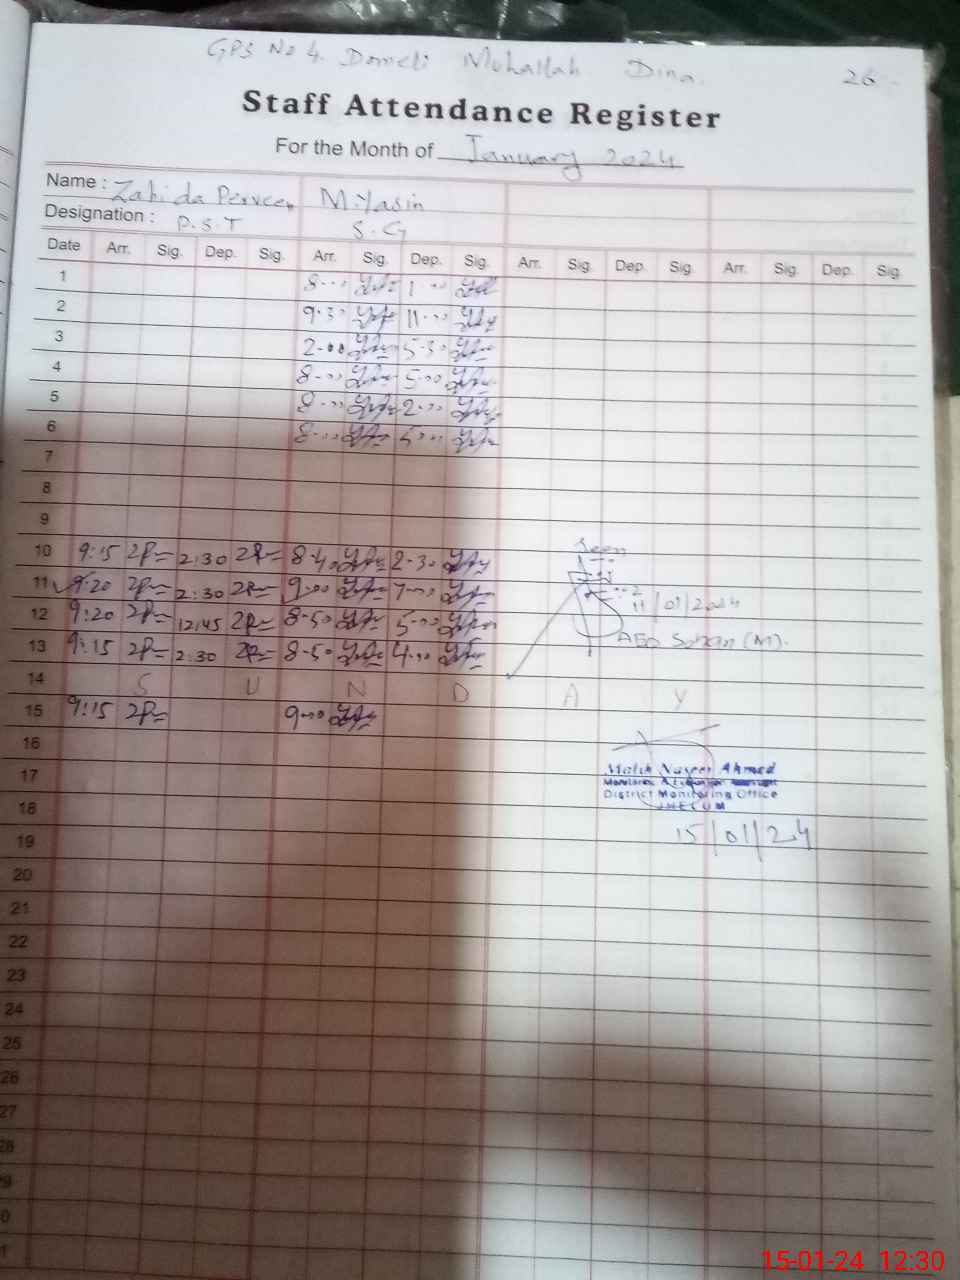 GPS No 4. Domeli Muhallah Dina.
26
Staff Attendance Register
For the Month of January 2024
Name : Zahida Perveen M.Yasin
Designation : P.S.T S.G
Date Arr. Sig. Dep. Sig. Arr. Sig. Dep. Sig. Arr. Sig. Dep. Sig. Arr. Sig. Dep. Sig.
1 8-00 1-00
2 9-30 11-00
3 2-00 5-30
4 8-00 5-00
5 8-00 2-00
6 8-00 5-00
7
8
9
10 9:15 2:30 8-40 2-30
Seen
11 9:20 2:30 9-00 7-00
11/01/2024
12 9:20 12:45 8-50 5-00
AEO Sohan (M).
13 9:15 2:30 8-50 4-00
14 S U N D A Y
15 9:15 9-00
16
17
Malik Naseer Ahmed
District Monitoring Office
JHELUM
18
15/01/24
19
20
21
22
23
24
25
26
27
28
9
0
1
15-01-24 12:30